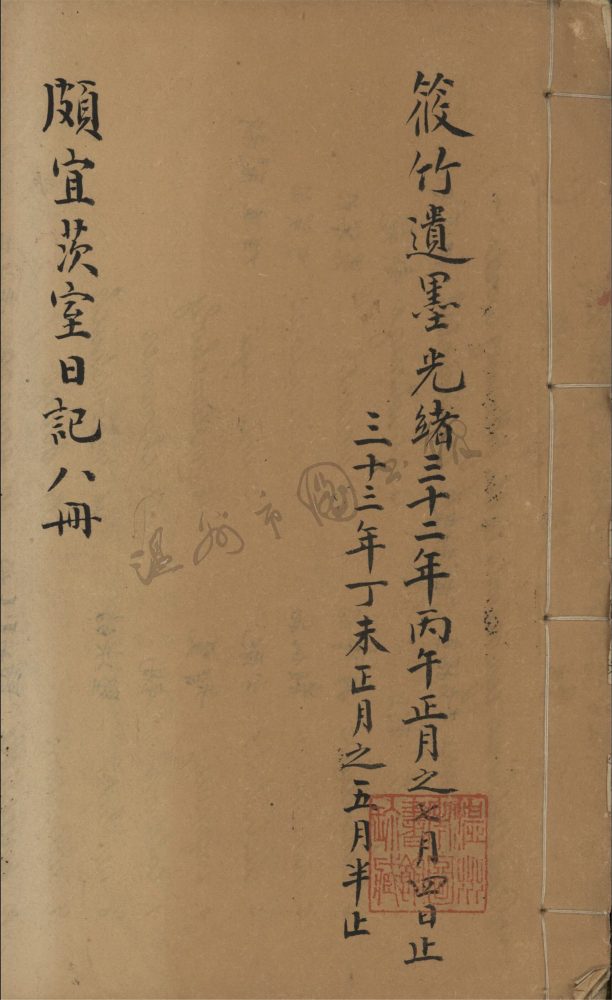 筱竹遺墨光緒三十二年丙午正月之七月四日止
三十三年丁未正月之五月半止
頗宜茨室日記八冊
溫州市圖書館
溫州市圖書館珍藏